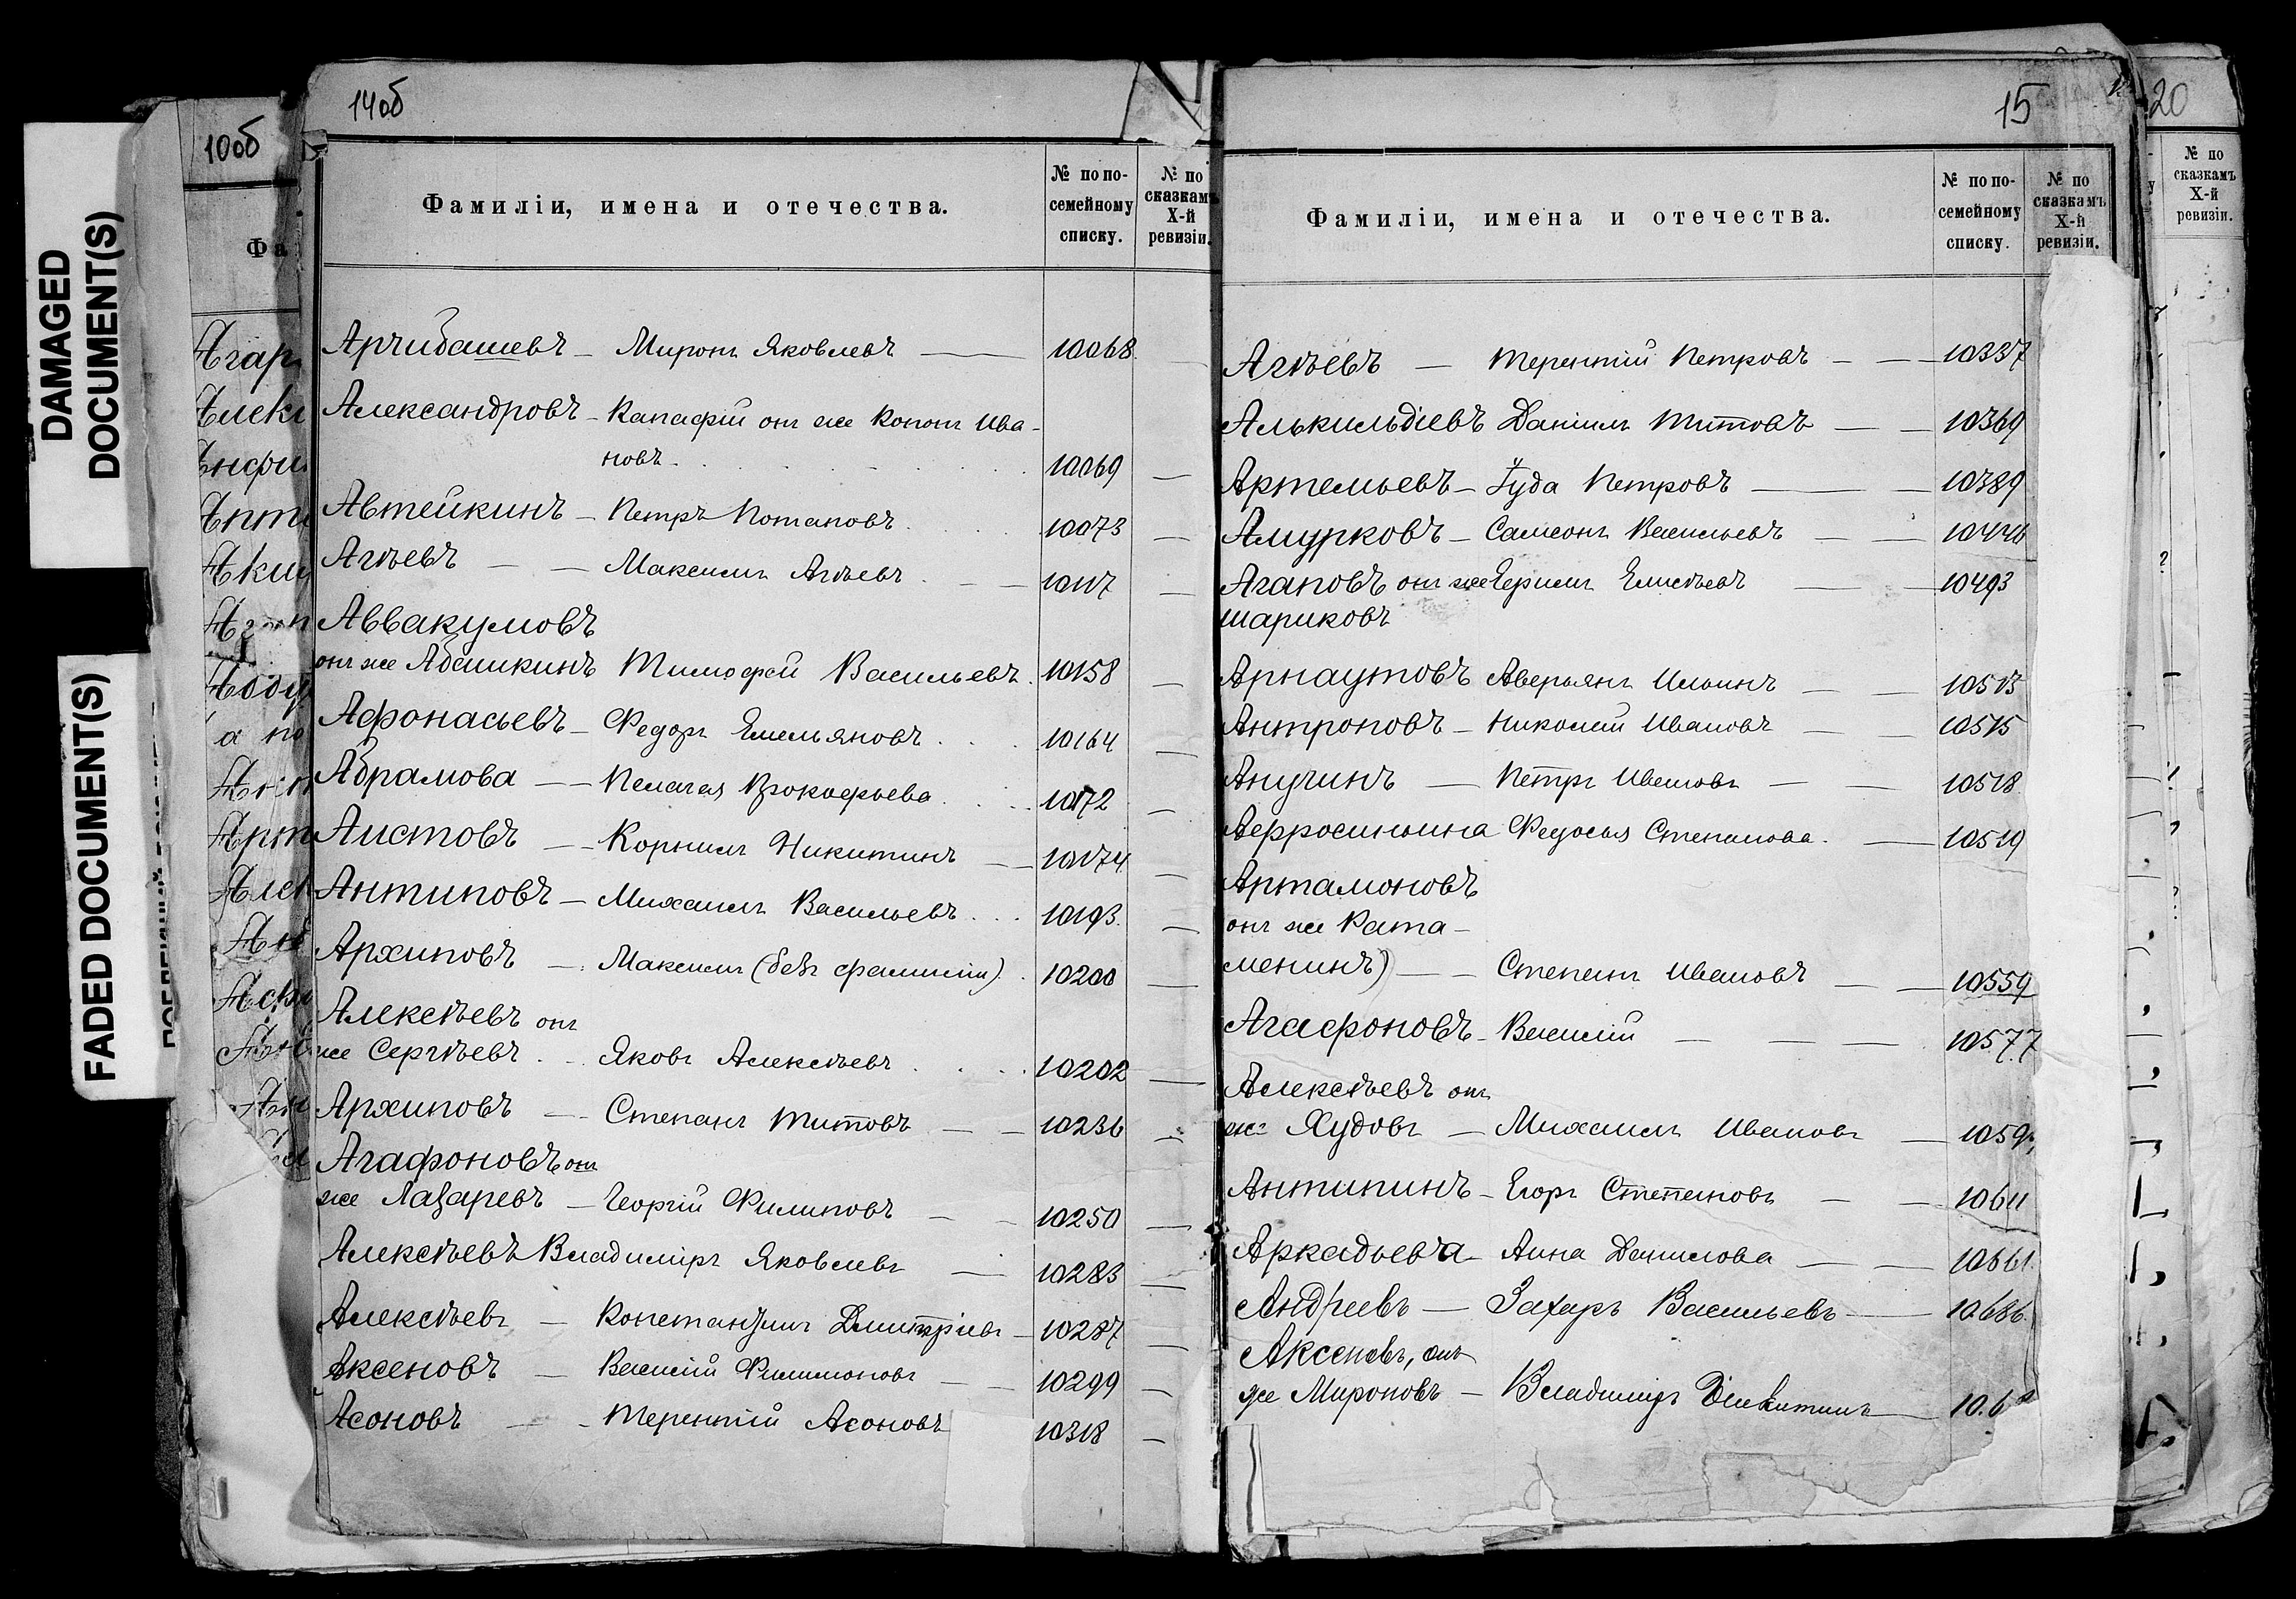 DAMAGED
DOCUMENT(S)
FADED DOCUMENT(S)
10об
Фа
14об
Фамиліи, имена и отечества.
№ по по-
семейному
списку.
№ по
сказкамъ
X-й
ревизіи.
Арчибашевъ — Миронъ Яковлевъ — 10068
Александровъ — Капафій онъ же Кононъ Ива-
новъ 10069 —
Автейкинъ — Петръ Потаповъ 10073 —
Агѣевъ — — Максимъ Агѣевъ — 10107 —
Аввакумовъ
онъ же Абашкинъ Тимофей Васильевъ 10158 —
Афонасьевъ — Федоръ Емельяновъ 10164 —
Абрамова — Пелагея Прокофьева 10172 —
Аистовъ — Корнилъ Никитинъ — 10174 —
Антиповъ — Михаилъ Васильевъ 10193 —
Архиповъ — Максимъ (безъ фамиліи) 10200 —
Алексѣевъ онъ
же Сергѣевъ — Яковъ Алексѣевъ 10202 —
Архиповъ — Степанъ Титовъ — — 10236 —
Агафоновъ онъ
же Лазаревъ — Георгій Филиповъ — — 10250 —
Алексѣевъ Владиміръ Яковлевъ — 10283 —
Алексѣевъ — Константинъ Дмитріевъ — 10287 —
Аксеновъ — Василій Филимоновъ — — 10299 —
Асоновъ — Терентій Асоновъ 10318 —
15
Фамиліи, имена и отечества.
№ по по-
семейному
списку.
№ по
сказкамъ
X-й
ревизіи.
Агѣевъ — Терентій Петровъ — — 10337
Алькильдіевъ Даніилъ Титовъ — — 10369
Артемьевъ — Іуда Петровъ — — 10389
Амурковъ — Самсонъ Васильевъ — —
Агаповъ онъ же Ефимъ Елисѣевъ — — 10493
Шариковъ
Арнаутовъ Аверьянъ Ильинъ — — 10513
Антроповъ — Николай Ивановъ — — 10515
Анучинъ — Петръ Ивановъ — — 10518
Аефросиньина Федосья Степанова — 10519
Артамоновъ
онъ же Рата-
менинъ) — — Степанъ Ивановъ — — 10559
Агафоновъ — Василій — — — 10577
Алексѣевъ онъ
же Худовъ — Михаилъ Ивановъ — 1059
Антипинъ — Егоръ Степановъ — — 10611
Аркадьева — Анна Данилова — — 10661
Андреевъ — Захаръ Васильевъ — 10686
Аксеновъ, онъ
же Мироновъ — Владиміръ Никитинъ — 10.6
20
№ по
сказкамъ
X-й
ревизіи.